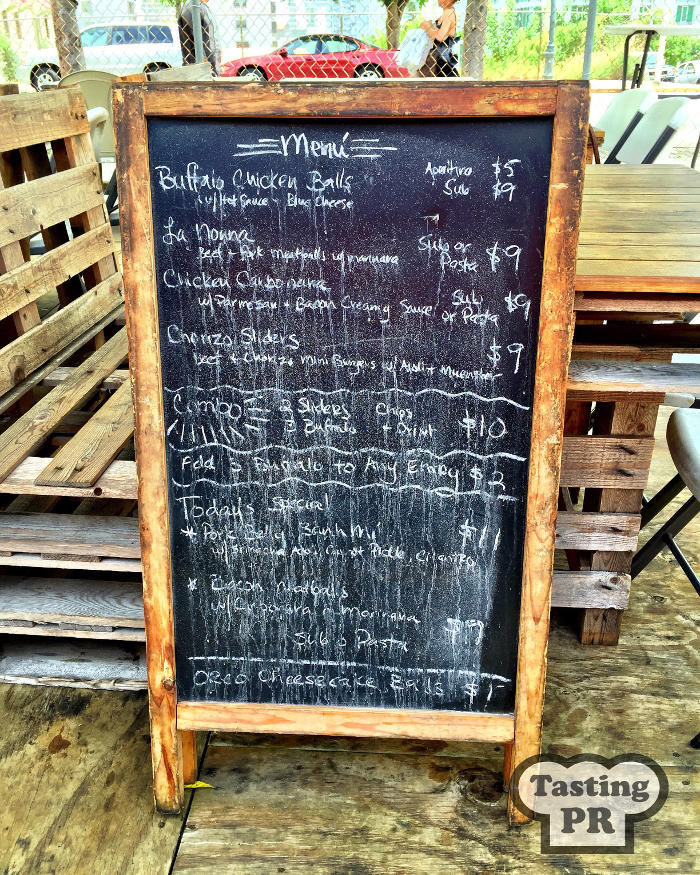 Menú
Buffalo Chicken Balls Aperitivo $5
w/ Hot Sauce + Blue Cheese Sub $9
La Nonna Sub or $9
Beef + Pork meatballs w/ marinara Pasta
Chicken Carbonara Sub $9
w/ Parmesan + Bacon Creamy Sauce or Pasta
Chorizo Sliders $9
Beef + Chorizo mini Burgers w/ Aioli +
Combo 2 Sliders Chips $10
3 Buffalo + Drink
Add 3 Buffalo to Any $2
Today's Special
* Pork Belly Banh Mi $11
w/ Aioli Pickle Cilantro
* Bacon meatballs
w/ Carbonara Marinara
Sub o Pasta
Oreo Cheesecake Balls
Tasting
PR